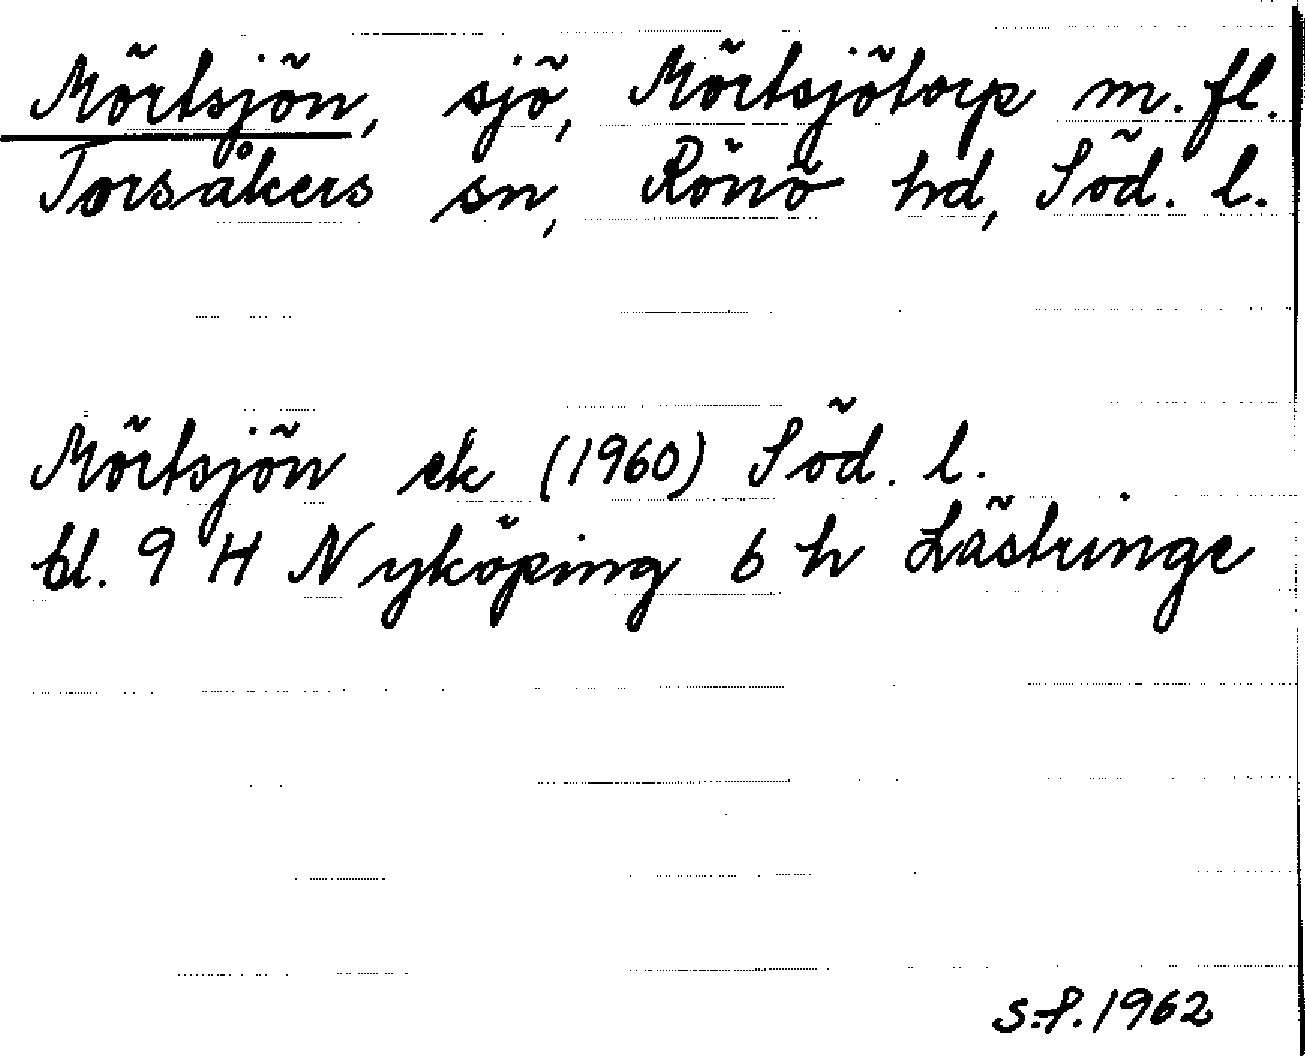 Mörtsjön, sjö, Mörtsjötorp m. fl.
Torsåkers sn, Rönö hd, Söd. l.
Mörtsjön ek (1960) Söd. l.
bl. 9 H Nyköping 6 h Lästringe
S.F. 1962